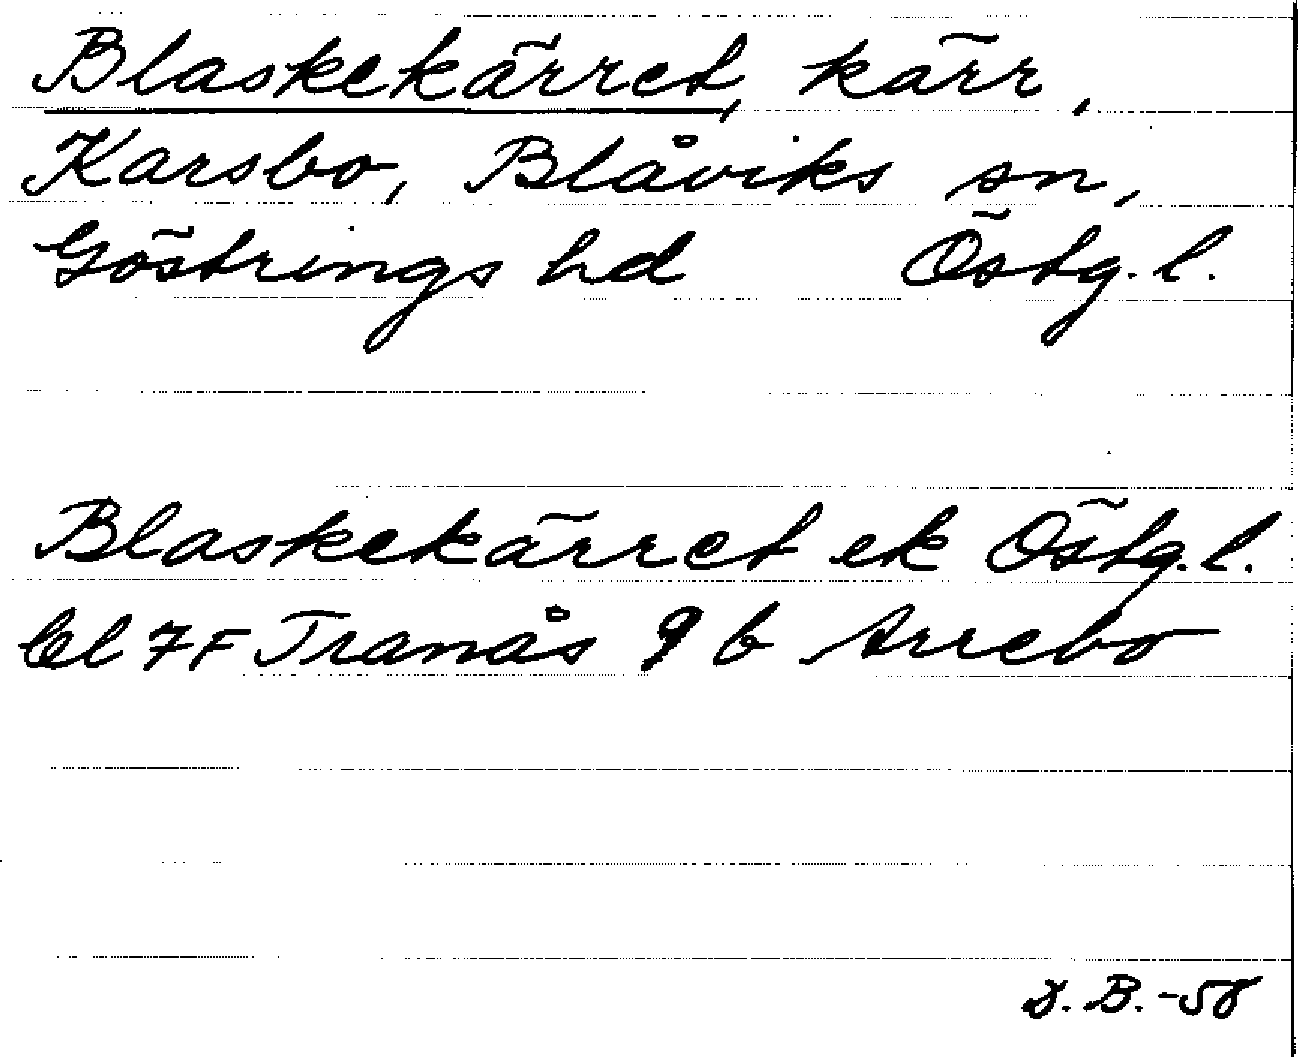 Blaskekärret, kärr,
Karsbo, Blåviks sn,
Göstrings hd Östg. l.
Blaskekärret ek Östg. l.
bl 7F Tranås 9 b Arrebo
S. B. -58